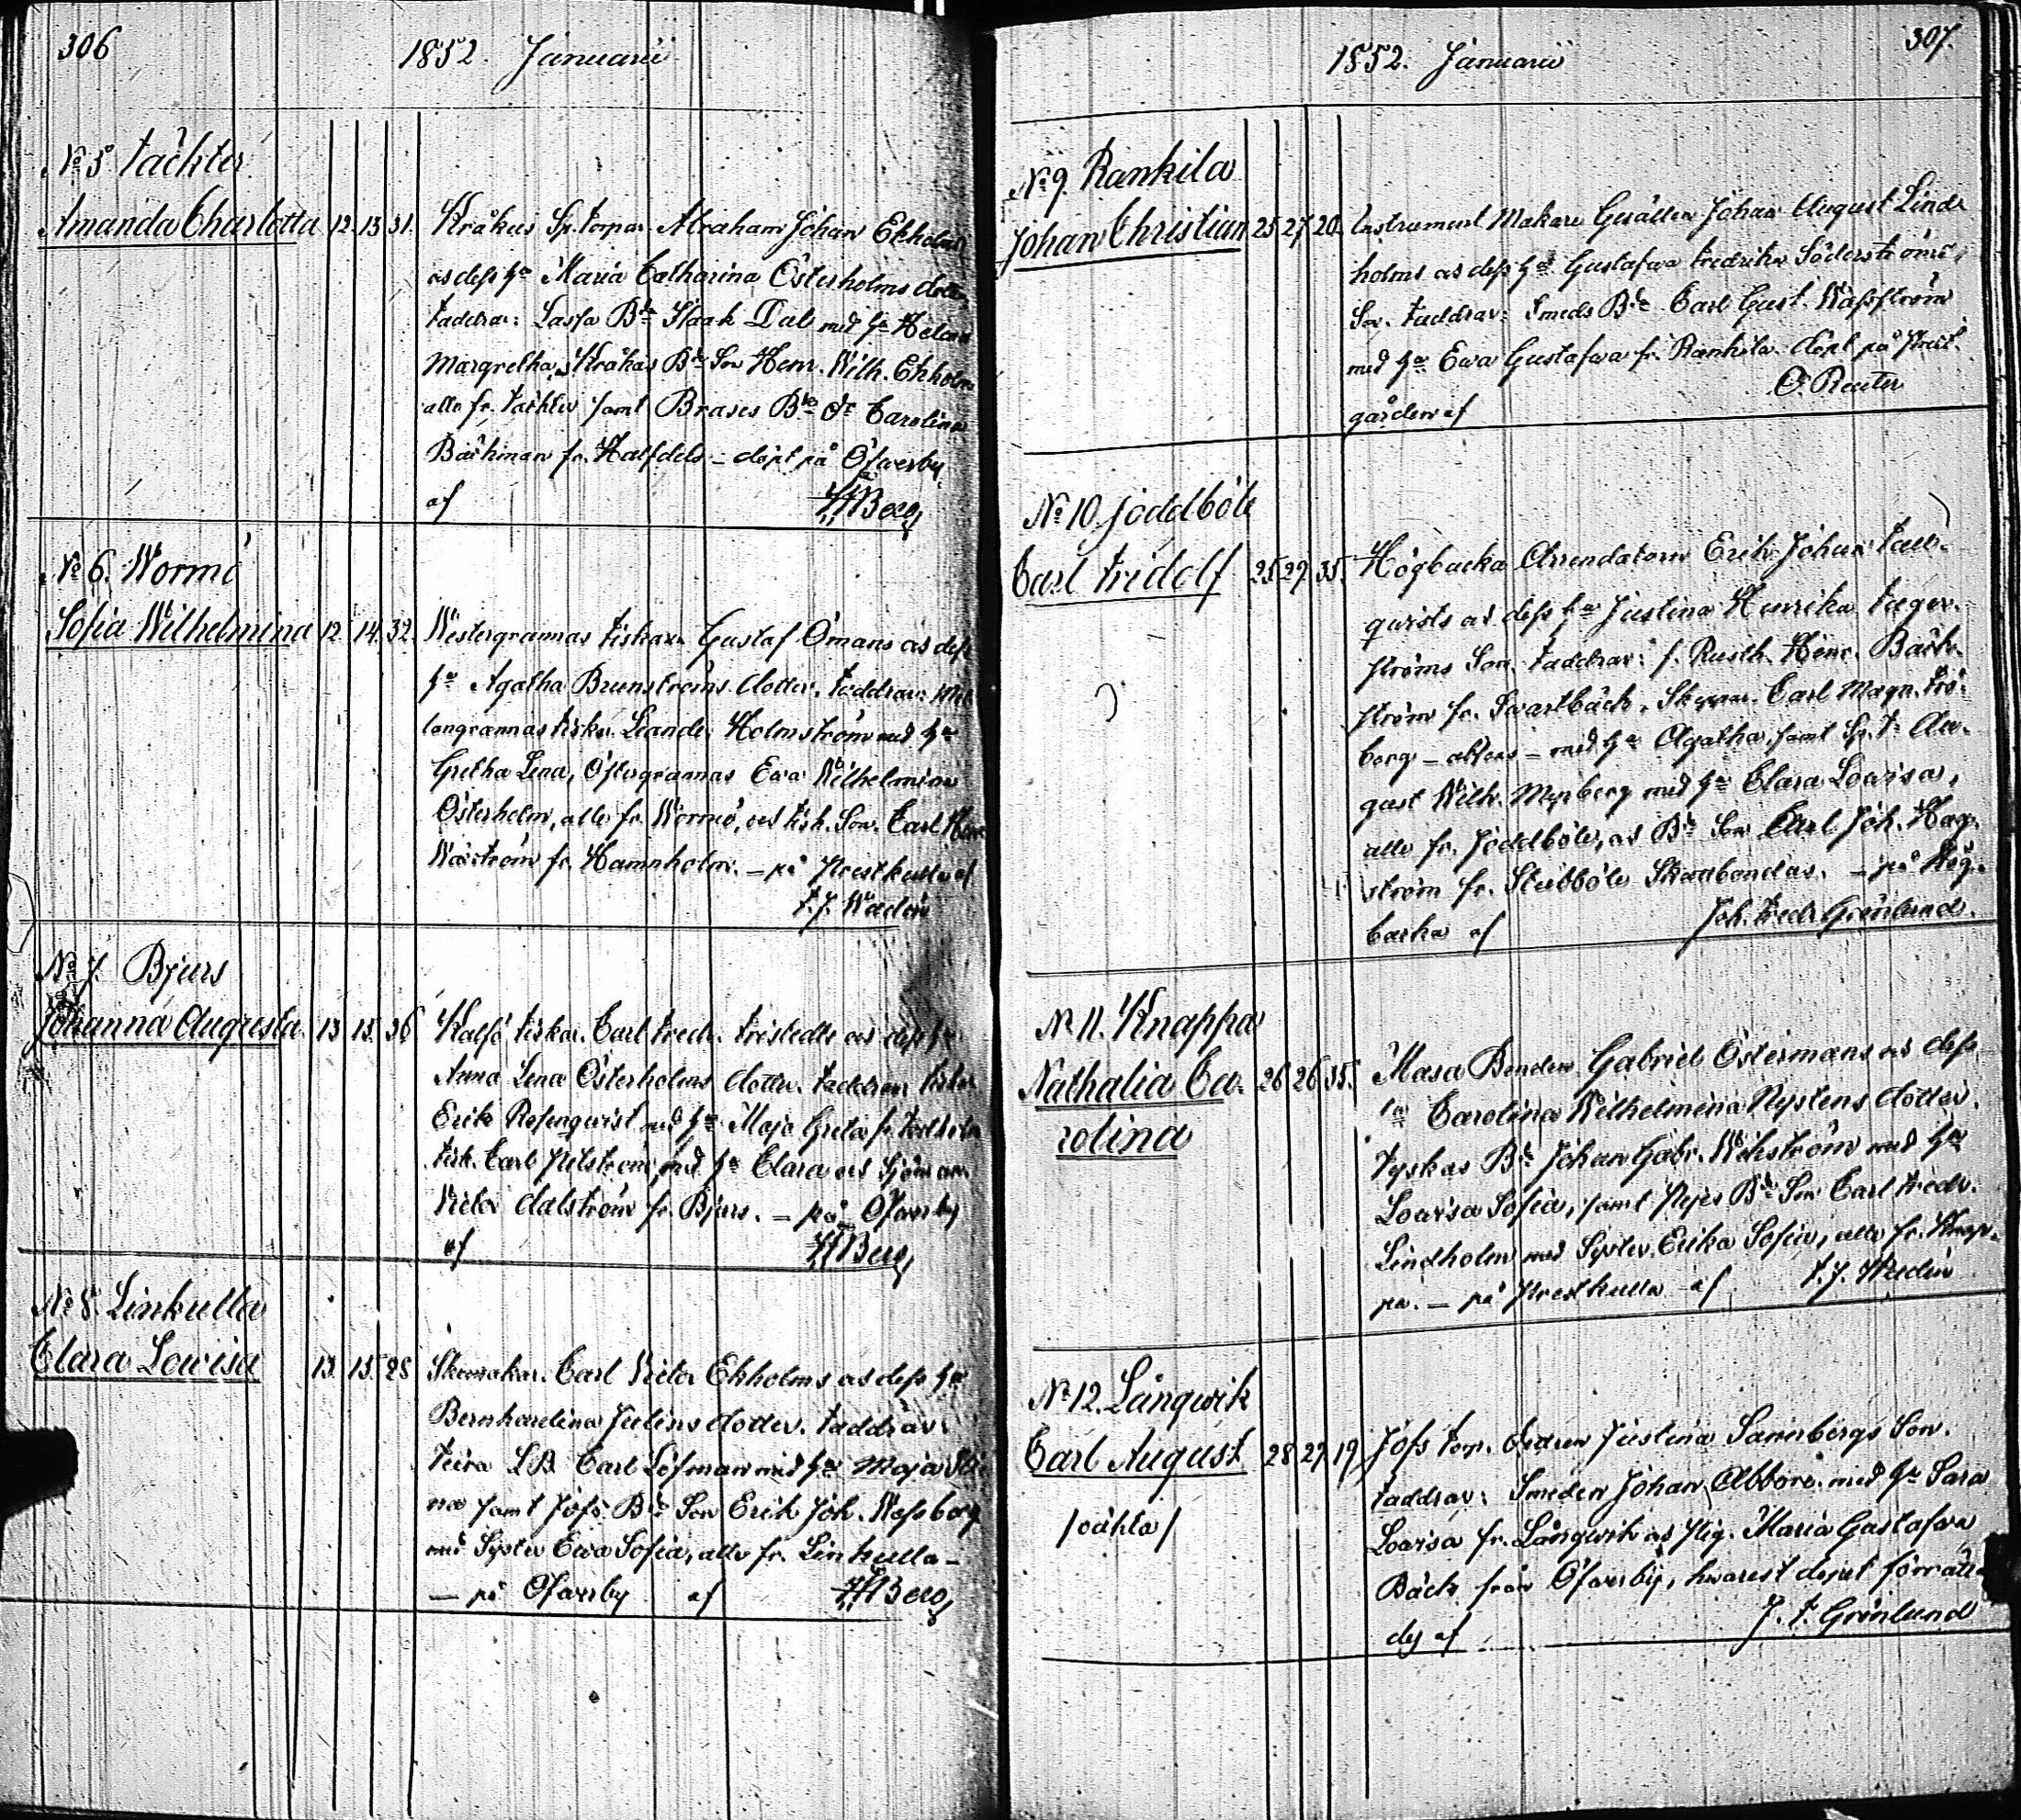 306
1852. Januarii
No 5 Fächter
Amanda Charlotta 12. 13. 31. Kråkas Sp. torpar. Abraham Johan Ekholms
os dess hu Maria Catharina Österholms dotter
Faddrar: Lassa Bde Isaak Dal med hu Helena
Margretha, Kråkas Bde Son Henr. Wilh. Ekholm
alla fr. Fächter samt Brases Bde dr Carolina
Bäckman fr. Halfdels – döpt på Öfwerby
af HBerg
No 6. Wormö
Sofia Wilhelmina 12. 14. 32. Westergrannas Fiskar. Gustaf Ömans os dess
hu Agatha Brunströms dotter. Faddrar: Mel
langrannas Fiskar. Leander Holmström med hu
Gretha Lena, Östergrannas Ewa Wilhelmina
Österholm, alla fr. Wormö, os Fisk. Son. Carl Henr
fr. Hamnholm. – på Prestkulla af
F. J. Wadén
No 7. Bjurs
Johanna Augusta. 13 15. 36 Kalfö Fiskar. Carl Fredr. Fristedts os dess hu
Anna Lena Österholms dotter. Faddrar: Fiskar
Erik Rosenqwist med hu Maja Greta fr.
Fisk. Carl med hu Clara os Sjöman
Victor dalström fr. Bjurs. – på Öfwerby
af HBerg
No 8. Linkulla
Clara Lowisa 13. 15. 28 Skomakar. Carl Victor Ekholms os dess hu
Bernhardina Julins dotter. Faddrar:
L.B. Carl Löfman med hu Maja Sti
na samt Jofs Bde Son Erik Joh. Wessberg
med Syster Ewa Sofia, alla fr. Linkulla –
– på Öfwerby af HBerg
307.
1852. Januarii
No 9. Rankila
Johan Christian 25 27 20. Instrument Makare Gesällen Johan August Lind
holms os dess hu Gustafwa Fredrika Söderströms
Son. Faddrar: Smeds Bde Carl Gust. Wassström
med hu Ewa Gustafwa fr. Rankila. döpt på Prest-
gården af O. Reuter
No 10. Joddböle
Carl Fridolf 25. 29. 35. Högbacka Arrendatorn Erik Johan
qwists os dess hu Justina Henrika Fager-
ströms Son. Faddrar: f. Rusth. Henr. Bäck-
ström fr. Swartbäck. Carl Magn.
berg med hu Agatha, samt Sp. T. Au-
gust Wilh. Nyberg med hu Clara Lowisa,
alla fr. Joddböle, os Bde Son Carl Joh. Hag-
ström fr. Stubböle – på Hög-
backa af Joh. Fredr. Grönlund.
No 11. Knappa
Nathalia Ca- 26 26 35. Masa Bonden Gabriel Östermans os dess
rolina hu Carolina Wilhelmina Nystens dotter.
Tyskas Bde Johan Gabr. Wikström med hu
Lowisa Sofia, samt Nyes Bde Son Carl Fredr.
Lindholm med Syster Erika Sofia, alla fr. Knap-
pa. – på Prestkulla af F. J. Wadén
No 12. Långwik
Carl August 28 29. 19 Jofs Torp. Enkan Justina Sannbergs Son.
/oäkta/ Faddrar: Smeden Johan Abboré med hu Sara
Lowisa fr. Långwik os Pig. Maria Gustafwa
Bäck från Öfwerby, hwarest dopet förrätta
des af J. F. Grönlund